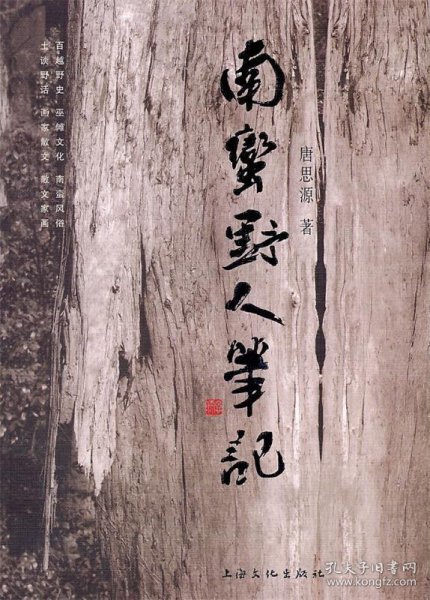 南蠻野人筆記
唐思源 著
百越野史 巫傩文化 南蛮风俗
土谈野话 画家散文 散文家画
上海文化出版社
孔夫子旧书网
www.kongfz.com